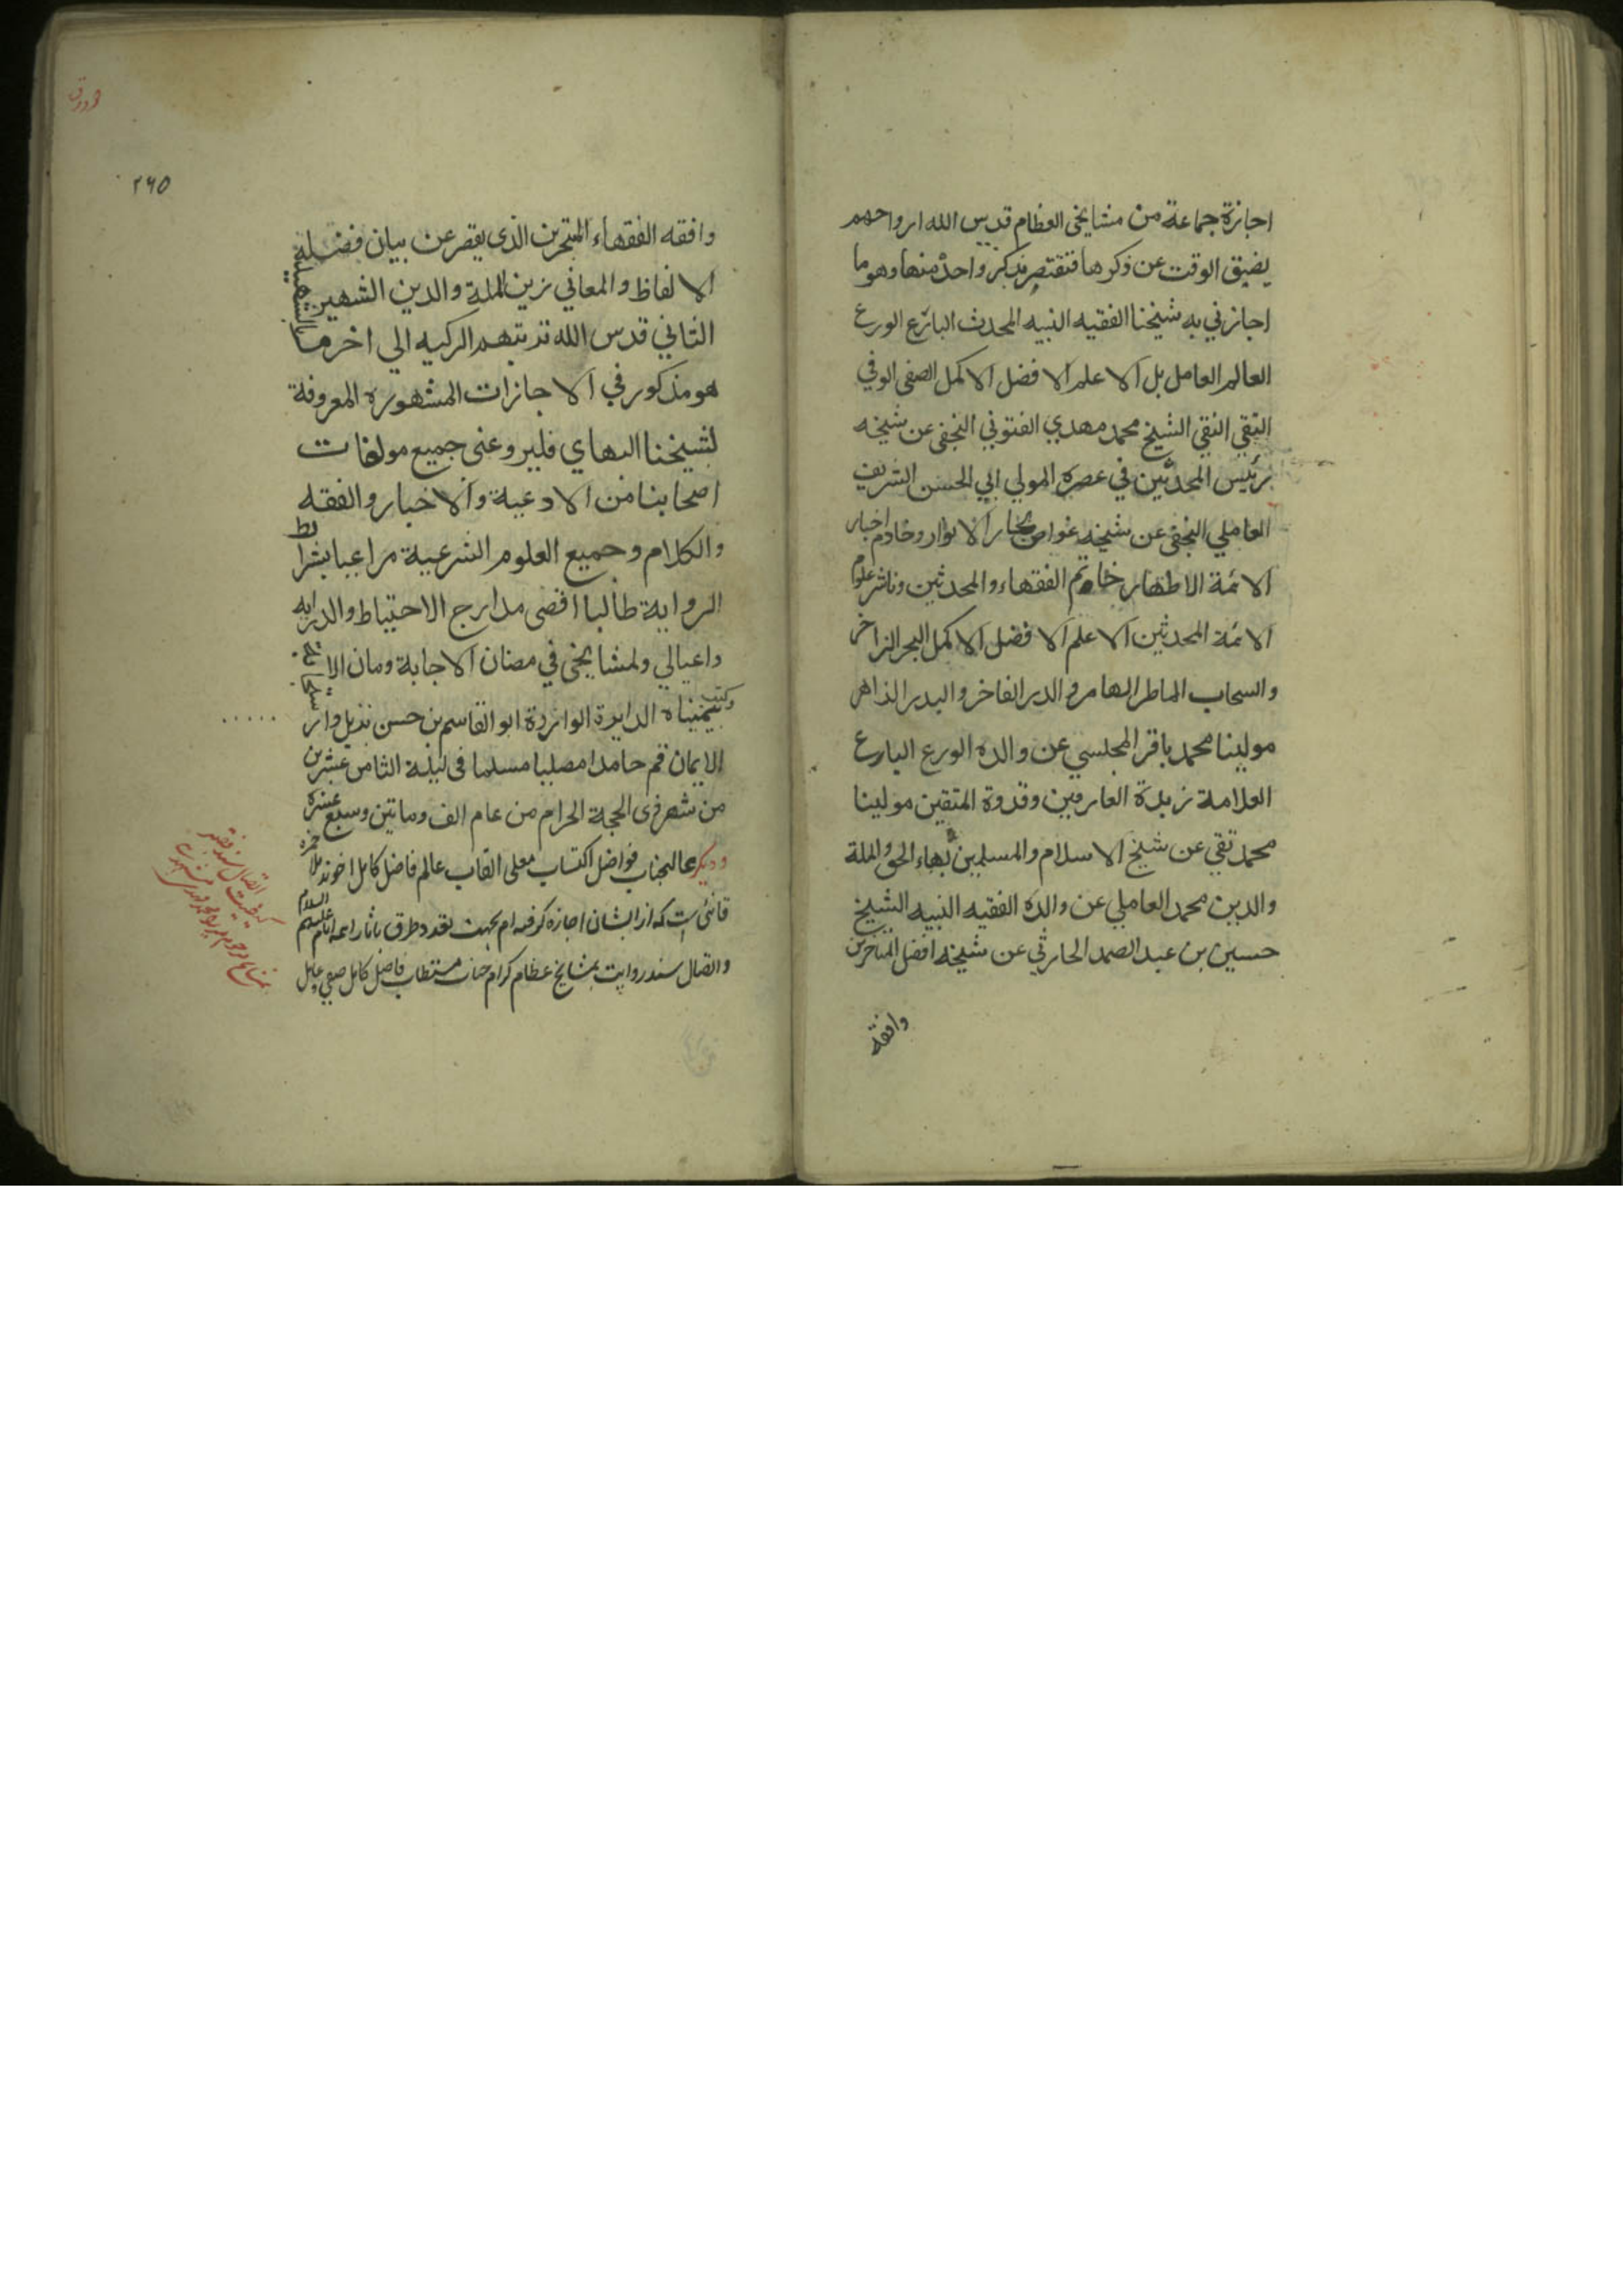 اجازة جماعة من مشايخى العظام قدس الله ارواحهم
يضيق الوقت عن ذكرها فنقتصر بذكر واحد منها وهو ما
اجازني به شيخنا الفقيه النبيه المحدث البارع الورع
العالم العامل بل الاعلم الافضل الاكمل الصفى الوفي
التقي النقي الشيخ محمد مهدي الفتوني النجفى عن شيخه
رئيس المحدثين في عصره المولي ابي الحسن الشريف
العاملي النجفى عن شيخه غواص بحار الانوار وخادم اخبار
الائمة الاطهار خاتم الفقهاء والمحدثين وناشر علوم
الائمة المحدثين الاعلم الافضل الاكمل البحر الزاخر
والسحاب الماطر الهامر والدر الفاخر والبدر الزاهر
مولينا محمد باقر المجلسي عن والده الورع البارع
العلامة زبدة العارفين وقدوة المتقين مولينا
محمد تقي عن شيخ الاسلام والمسلمين بهاء الحق والملة
والدين محمد العاملي عن والده الفقيه النبيه الشيخ
حسين بن عبد الصمد الحارثي عن شيخه افضل المتاخرين
وافقه
٢٦٥
وافقه الفقهاء المتبحرين الذى يقصر عن بيان فضله
الالفاظ والمعاني زين الملة والدين الشهير بالشهيد
الثاني قدس الله تربتهم الزكيه الي اخر ما
هو مذكور في الاجازات المشهوره المعروفة
لشيخنا البهاي فليرو عنى جميع مولفات
اصحابنا من الادعية والاخبار والفقه
والكلام وجميع العلوم الشرعية مراعيا بشرايط
الرواية طالبا اقصى مدارج الاحتياط والدرايه
داعيا لي ولمشايخى في مضان الاجابة ومان الا
وكتب بيمنياه الدايرة الوازرة ابو القاسم بن حسن نذيل دار
الايمان قم حامدا مصليا مسلما فى ليلة الثامن عشرين
من شهر ذى الحجة الحرام من عام الف وماتين وسبع عشره
وديكر عاليجناب فواضل اكتساب معلى القاب عالم فاضل كامل اخوند ملا حمزه
قائنى است كه از ايشان اجازه كرفته ام بجهت تعدد طرق باثار ائمه انام عليهم السلام
واتصال سند روايت بمشايخ عظام كرام جناب مستطاب فاضل كامل صفى عامل